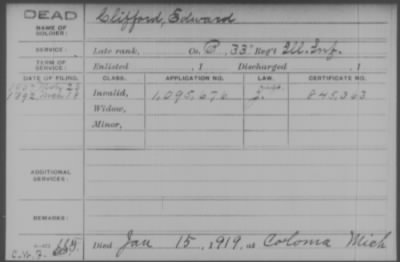 DEAD
NAME OF SOLDIER: Clifford, Edward
SERVICE: Late rank, Co. B 33 Reg't Ill. Inf.
TERM OF SERVICE: Enlisted , 1 Discharged , 1
DATE OF FILING. CLASS. APPLICATION NO. LAW. CERTIFICATE NO.
1892 Invalid, 1,095,676 845,363
Widow,
Minor,
ADDITIONAL SERVICES:
REMARKS:
Died Jan 15, 1919, at Coloma Mich